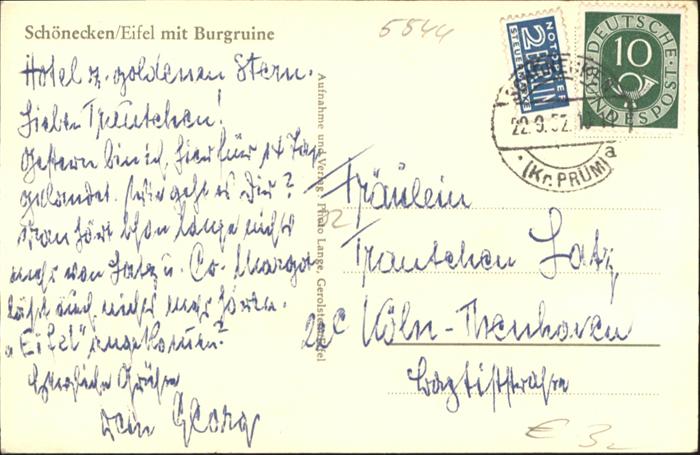 Schönecken/Eifel mit Burgruine
5544
Hotel z. goldenen Stern.
Liebes Trautchen!
Gestern bin ich hier für 14 Tag
gelandet. Wie geht es Dir?
Man hört schon lange nichts
mehr von Satz u. Co. Margot
läßt auch nichts mehr hören.
"Eifel" angekommen?
Herzliche Grüße
Dein Georg
Aufnahme und Verlag: Photo Lange, Gerolstein/Eifel
NOTOPFER
2 BERLIN
STEUERMARKE
DEUTSCHE
10
BUNDESPOST
22.9.52
(Kr. PRÜM)
a
Fräulein
Trautchen Satz
22c Köln-
straße
€ 3,-